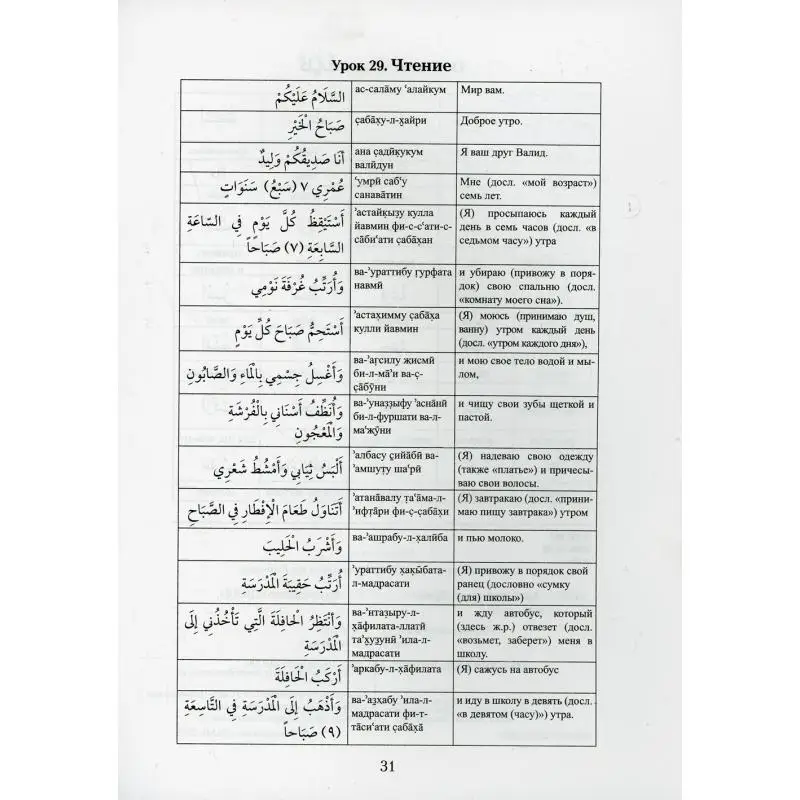 Урок 29. Чтение
السَّلَامُ عَلَيْكُمْ
ас-сала̄му ‘алайкум
Мир вам.
صَبَاحُ الْخَيْرِ
с̣аба̄х̣у-л-х̮айри
Доброе утро.
أَنَا صَدِيقُكُمْ وَلِيدٌ
ана с̣адӣк̣укум
валӣдун
Я ваш друг Валид.
عُمْرِي ٧ (سَبْعُ) سَنَوَاتٍ
‘умрӣ саб‘у
санава̄тин
Мне (досл. «мой возраст»)
семь лет.
أَسْتَيْقِظُ كُلَّ يَوْمٍ فِي السَّاعَةِ
السَّابِعَةِ (٧) صَبَاحاً
’астайк̣ыз̣у кулла
йавмин фи-с-са̄‘ати-с-
са̄би‘ати с̣аба̄х̣ан
(Я) просыпаюсь каждый
день в семь часов (досл. «в
седьмом часу») утра
وَأُرَتِّبُ غُرْفَةَ نَوْمِي
ва-’ураттибу г̣урфата
навмӣ
и убираю (привожу в поря-
док) свою спальню (досл.
«комнату моего сна»).
أَسْتَحِمُّ صَبَاحَ كُلِّ يَوْمٍ
’астах̣имму с̣аба̄х̣а
кулли йавмин
(Я) моюсь (принимаю душ,
ванну) утром каждый день
(досл. «утром каждого дня»),
وَأَغْسِلُ جِسْمِي بِالْمَاءِ وَالصَّابُونِ
ва-’аг̣силу жисмӣ
би-л-ма̄’и ва-с̣-
с̣а̄бӯни
и мою свое тело водой и мы-
лом,
وَأُنَظِّفُ أَسْنَانِي بِالْفُرْشَةِ
وَالْمَعْجُونِ
ва-’уназ̣з̣ыфу ’асна̄нӣ
би-л-фуршати ва-л-
ма‘жӯни
и чищу свои зубы щеткой и
пастой.
أَلْبَسُ ثِيَابِي وَأَمْشُطُ شَعْرِي
’албасу с̱ийа̄бӣ ва-
’амшут̣у ша‘рӣ
(Я) надеваю свою одежду
(также «платье») и причесы-
ваю свои волосы.
أَتَنَاوَلُ طَعَامَ الْإِفْطَارِ فِي الصَّبَاحِ
’атана̄валу т̣а‘а̄ма-л-
’ифт̣а̄ри фи-с̣-с̣аба̄х̣и
(Я) завтракаю (досл. «прини-
маю пищу завтрака») утром
وَأَشْرَبُ الْحَلِيبَ
ва-’ашрабу-л-х̣алӣба
и пью молоко.
أُرَتِّبُ حَقِيبَةَ الْمَدْرَسَةِ
’ураттибу х̣ак̣ӣбата-
л-мадрасати
(Я) привожу в порядок свой
ранец (дословно «сумку
(для) школы»)
وَأَنْتَظِرُ الْحَافِلَةَ الَّتِي تَأْخُذُنِي إِلَى
الْمَدْرَسَةِ
ва-’нтаз̣ыру-л-
х̣а̄филата-ллатӣ
та’х̮уз̱унӣ ’ила-л-
мадрасати
и жду автобус, который
(здесь ж.р.) отвезет (досл.
«возьмет, заберет») меня в
школу.
أَرْكَبُ الْحَافِلَةَ
’аркабу-л-х̣а̄филата
(Я) сажусь на автобус
وَأَذْهَبُ إِلَى الْمَدْرَسَةِ فِي التَّاسِعَةِ
(٩) صَبَاحاً
ва-’аз̱хабу ’ила-л-
мадрасати фи-т-
та̄си‘ати с̣аба̄х̣а̄
и иду в школу в девять (досл.
«в девятом (часу)») утра.
31